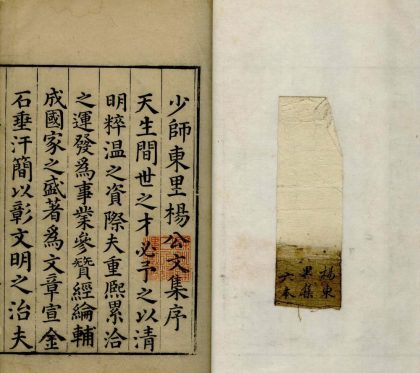 少師東里楊公文集序
天生間世之才必予之以清
明粹温之資際夫重熙累洽
之運發為事業參贊經綸輔
成國家之盛著為文章宣金
石垂汗簡以彰文明之治夫
楊東
里集
六本